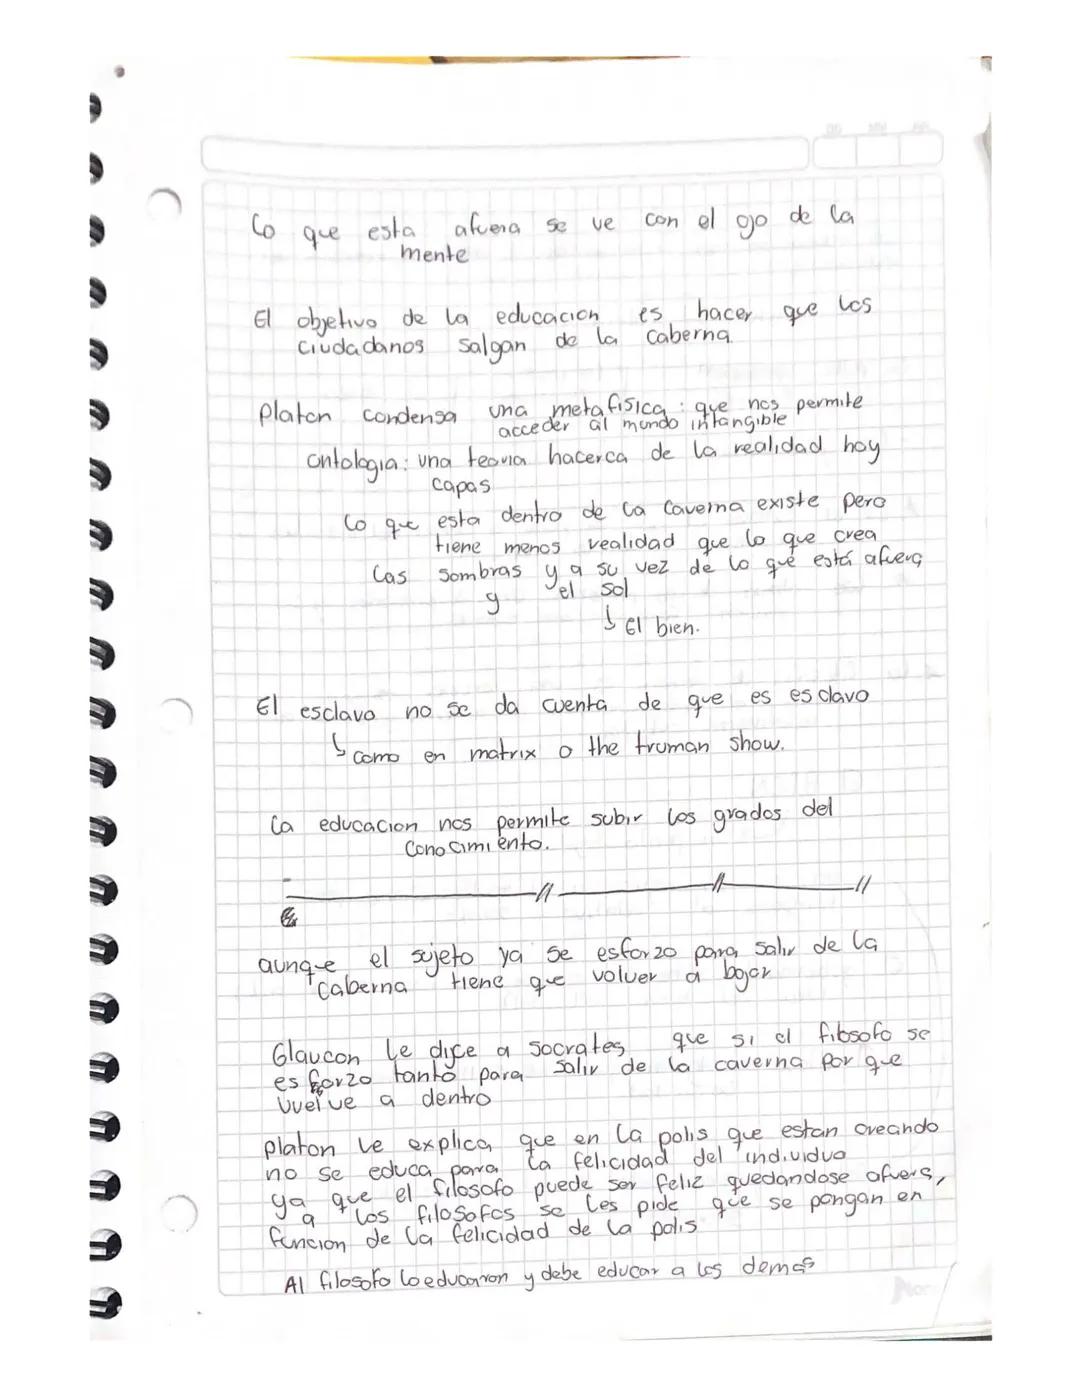 DD MM AA
Lo que esta afuera se ve con el ojo de la
mente
El objetivo de la educacion es hacer que los
ciudadanos salgan de la caberna.
Platon condensa una metafisica: que nos permite
acceder al mundo intangible
ontologia: una teoria hacerca de la realidad hay
capas
Lo que esta dentro de la caverna existe pero
tiene menos realidad que lo que crea
las sombras y a su vez de lo que está afuera
y el sol
El bien.
El esclavo no se da cuenta de que es esclavo
como en matrix o the truman show.
La educacion nos permite subir los grados del
conocimiento.
aunque el sujeto ya se esforzo para salir de la
caberna tiene que volver a bajar
Glaucon le dice a socrates que si el filosofo se
esforzo tanto para salir de la caverna por que
vuelve a dentro
platon le explica que en la polis que estan creando
no se educa para la felicidad del individuo
ya que el filosofo puede ser feliz quedandose afuera,
a los filosofos se les pide que se pongan en
funcion de la felicidad de la polis
Al filosofo lo educaron y debe educar a los demas
Nor